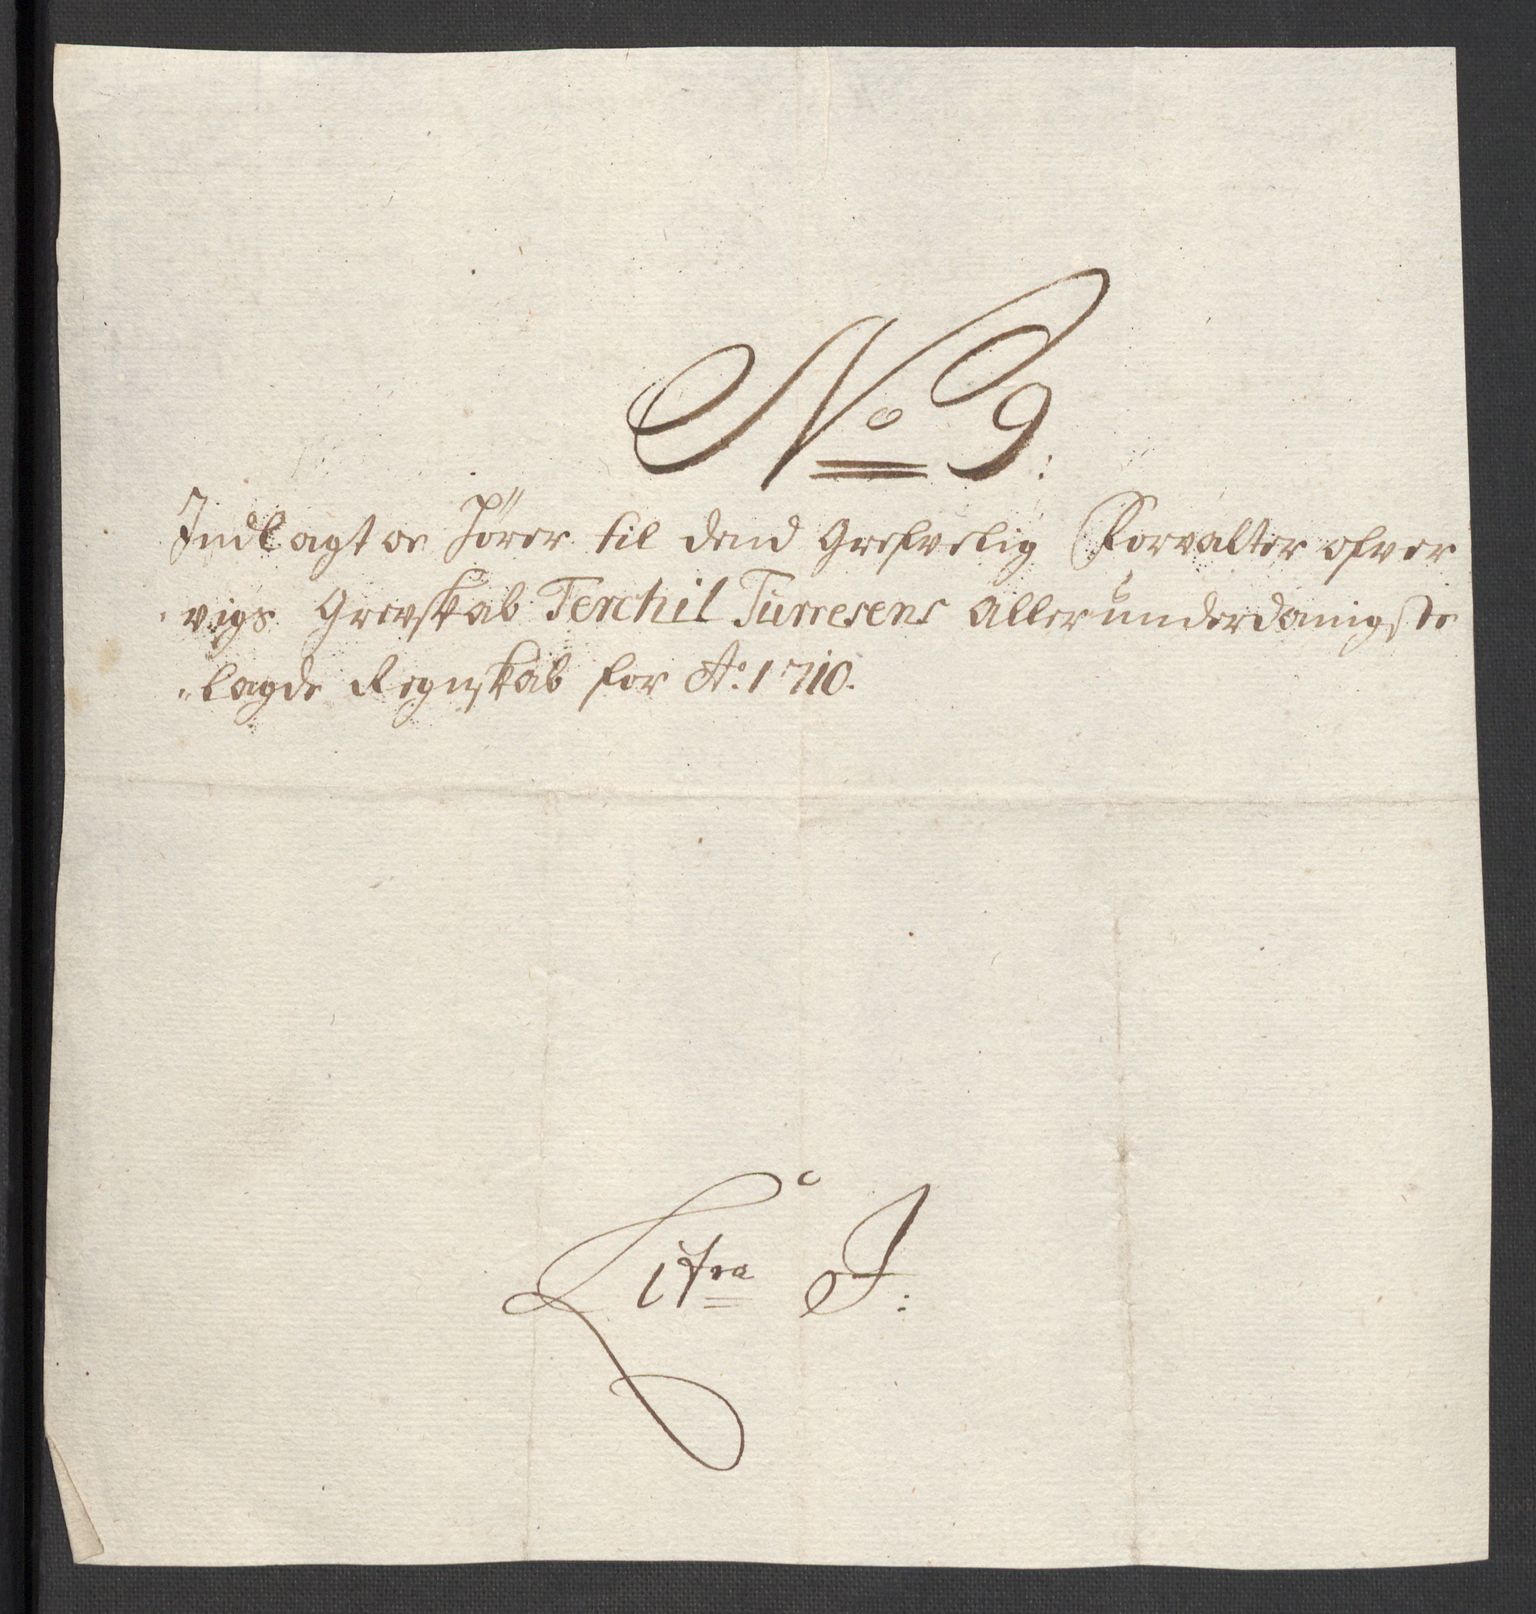 No 9:
Indlagt og hører til dend Grefvelig Forvalter ofver
vigs Grevskab Terchil Turresens Allerunderdanigste
lagde Regnskab for Ao: 1710.
Litra J: